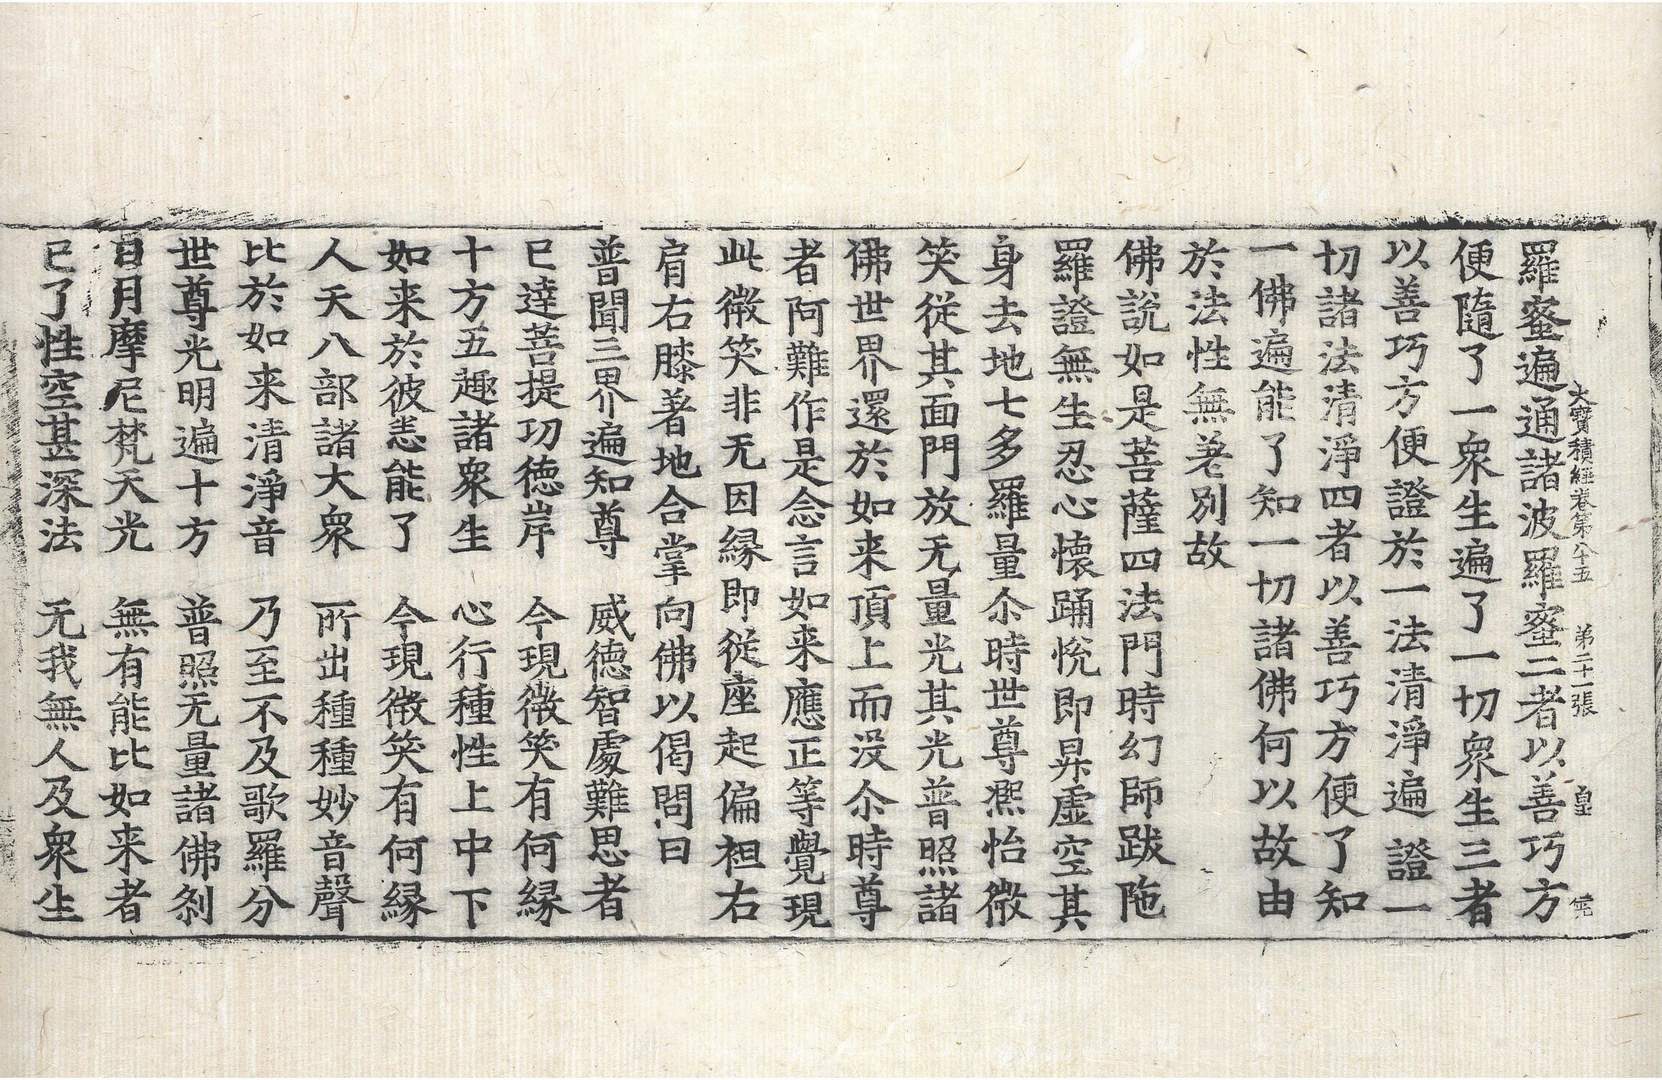 大寶積經卷第八十五　第二十一張　皇
羅蜜遍通諸波羅蜜二者以善巧方
便隨了一衆生遍了一切衆生三者
以善巧方便證於一法清淨遍證一
切諸法清淨四者以善巧方便了知
一佛遍能了知一切諸佛何以故由
於法性無差別故
佛說如是菩薩四法門時幻師跋陁
羅證無生忍心懷踊悅即昇虛空其
身去地七多羅量尒時世尊凞怡微
笑從其面門放无量光其光普照諸
佛世界還於如来頂上而没尒時尊
者阿難作是念言如来應正等覺現
此微笑非无因縁即從座起偏袒右
肩右膝著地合掌向佛以偈問曰
普聞三界遍知尊　威德智處難思者
已達菩提功德岸　今現微笑有何縁
十方五趣諸衆生　心行種性上中下
如来於彼悉能了　今現微笑有何縁
人天八部諸大衆　所出種種妙音聲
比於如来清淨音　乃至不及歌羅分
世尊光明遍十方　普照无量諸佛刹
日月摩尼梵天光　無有能比如来者
已了性空甚深法　无我無人及衆生